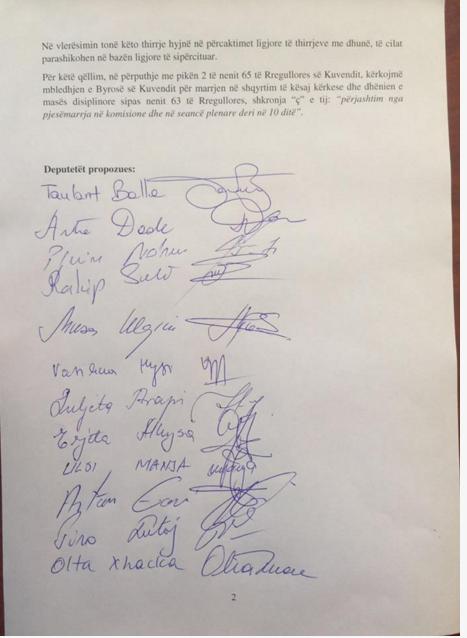 Në vlerësimin tonë këto thirrje hyjnë në përcaktimet ligjore të thirrjeve me dhunë, të cilat
parashikohen në bazën ligjore të sipërcituar.
Për këtë qëllim, në përputhje me pikën 2 të nenit 65 të Rregullores së Kuvendit, kërkojmë
mbledhjen e Byrosë së Kuvendit për marrjen në shqyrtim të kësaj kërkese dhe dhënien e
masës disiplinore sipas nenit 63 të Rregullores, shkronja “ç” e tij: “përjashtim nga
pjesëmarrja në komisione dhe në seancë plenare deri në 10 ditë”.
Deputetët propozues:
Taulant Balla
Dade
Rakip Suli
Hysi
Zuljeta Arapi
Erjda
ULSI MANJA
Olta Xhaçka
2